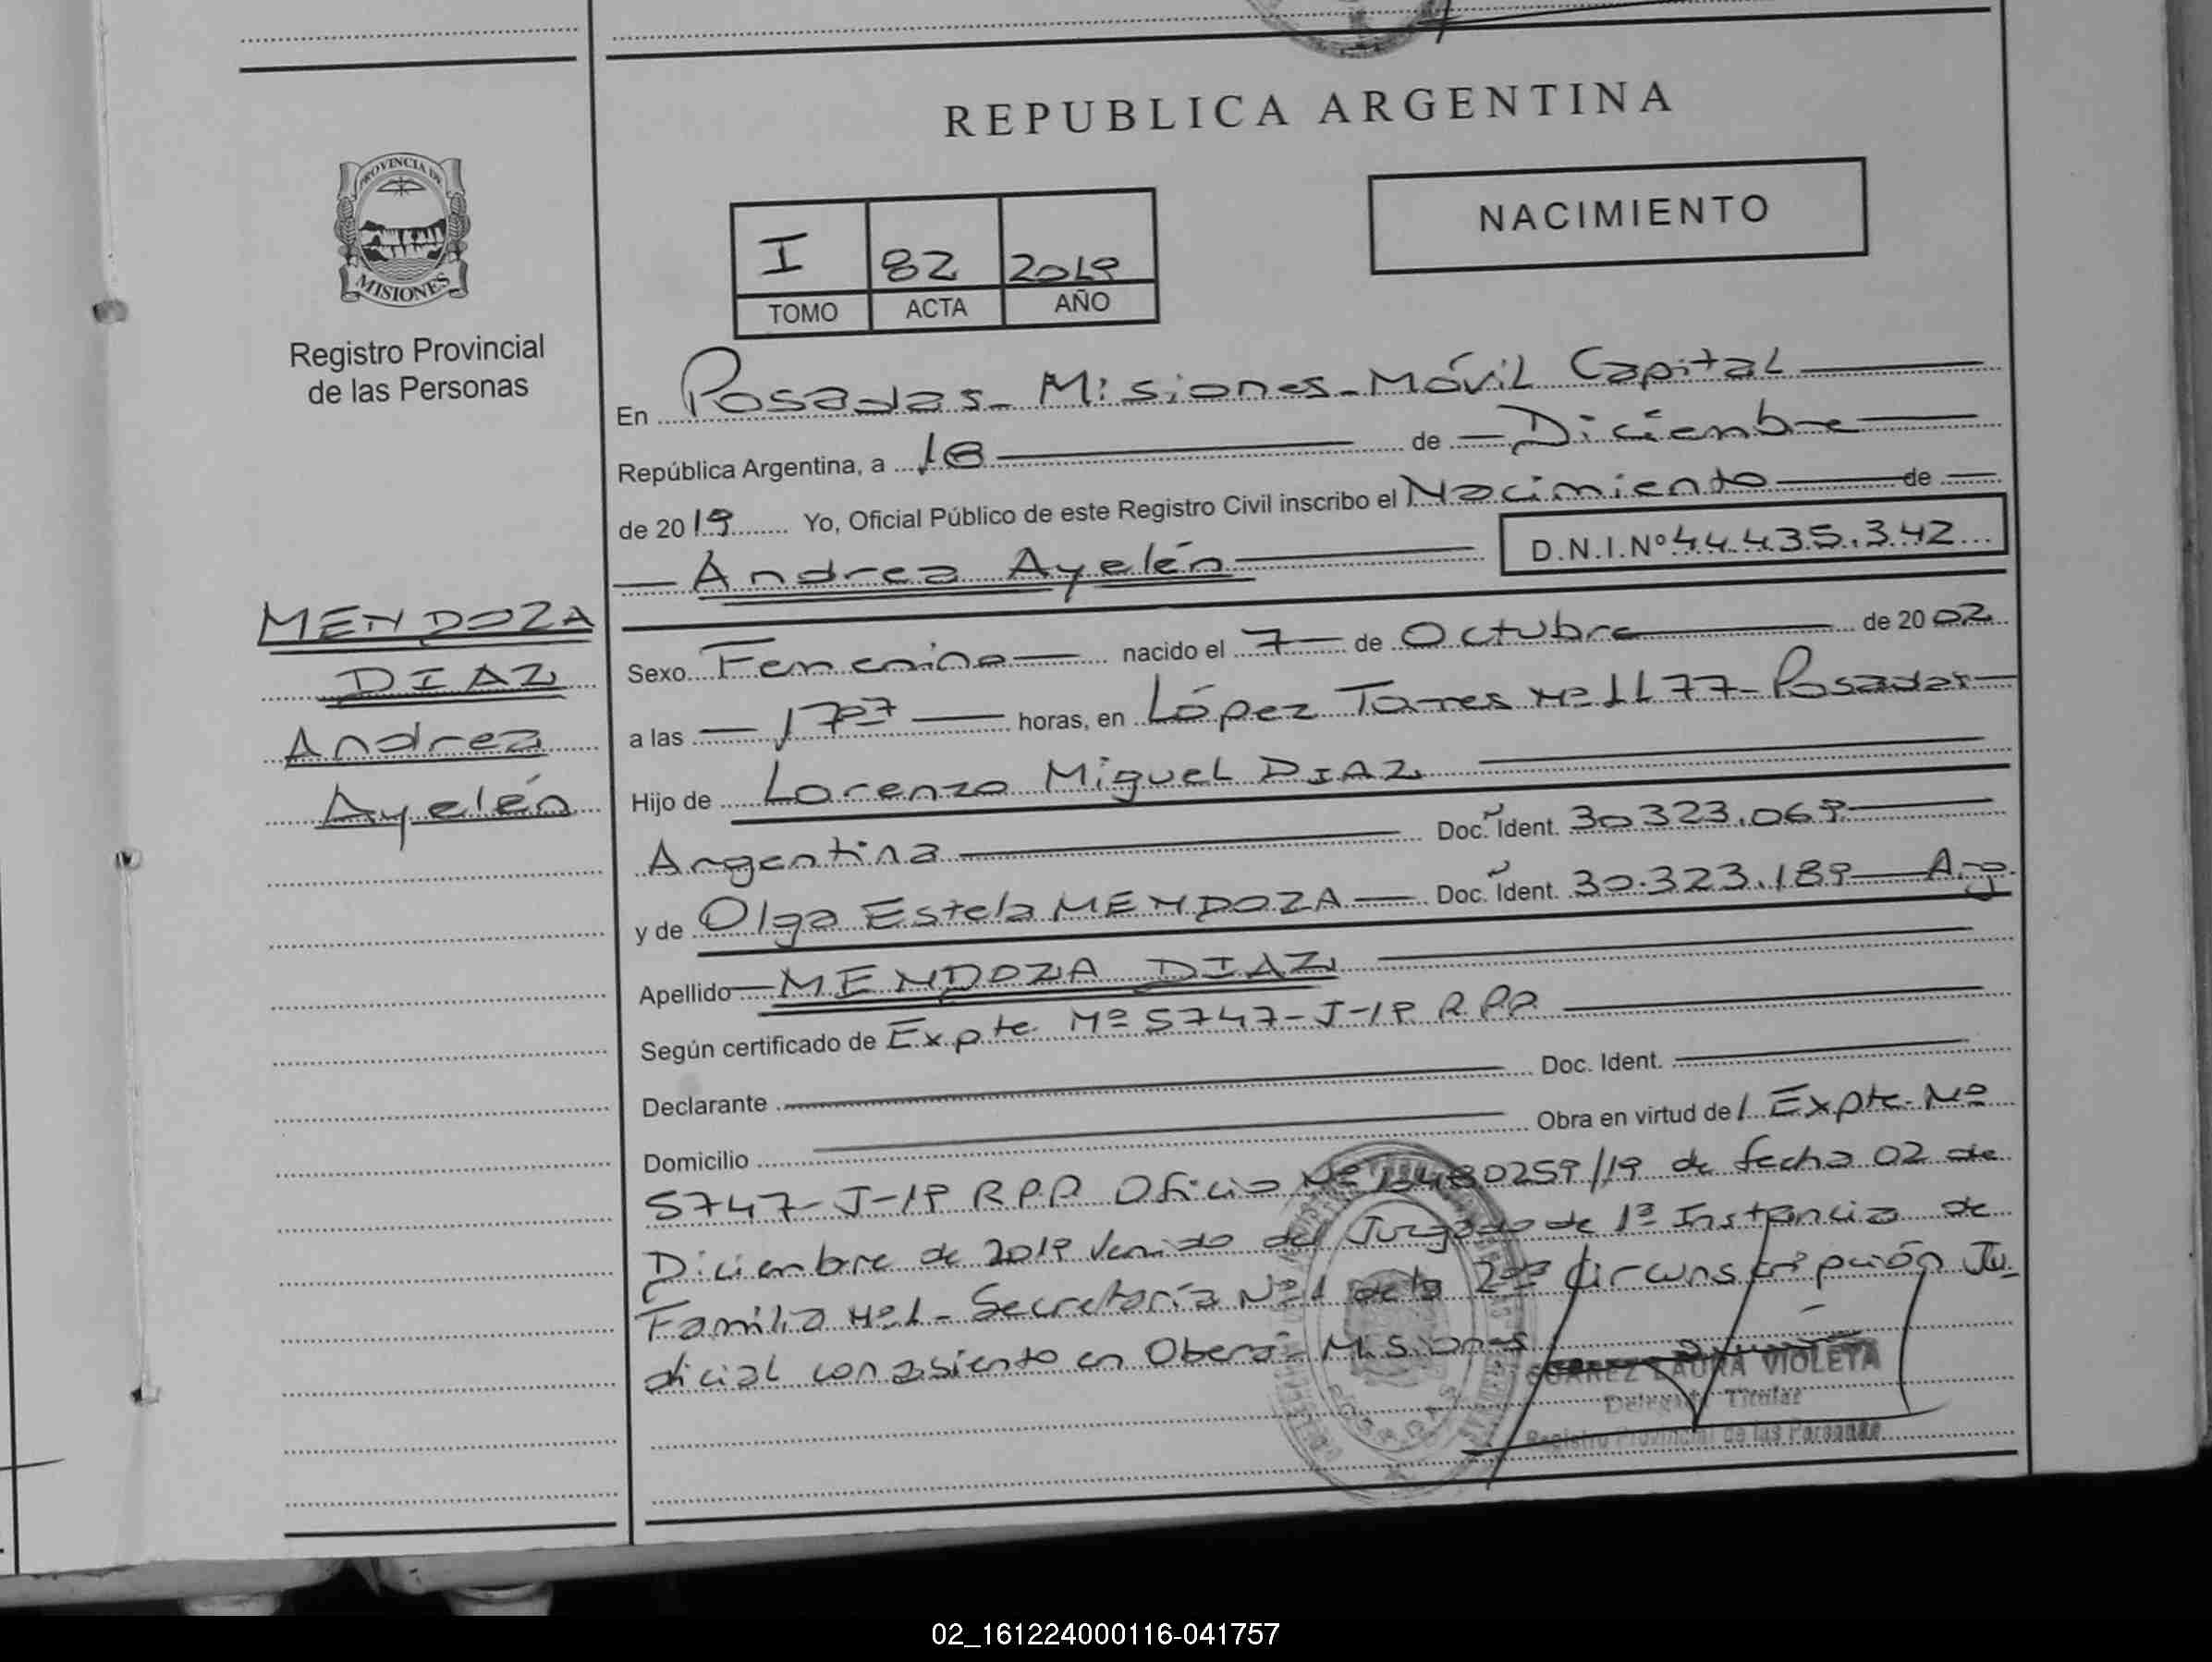 REPUBLICA ARGENTINA
PROVINCIA DE
MISIONES
Registro Provincial
de las Personas
NACIMIENTO
I 82 2019
TOMO ACTA AÑO
En Posadas - Misiones - Móvil Capital
República Argentina, a 18 de Diciembre
de 2019 Yo, Oficial Público de este Registro Civil inscribo el Nacimiento de
Andrea Ayelén D.N.I.Nº 44.435.342
MENDOZA
DIAZ
Andrea
Ayelén
Sexo Femenino nacido el 7 de Octubre de 2002
a las 17 07 horas, en López Torres Nº 1177 - Posadas
Hijo de Lorenzo Miguel DIAZ
Argentina Doc. Ident. 30323.069
y de Olga Estela MENDOZA Doc. Ident. 30.323.189 Arg.
Apellido MENDOZA DIAZ
Según certificado de Expte. Nº 5747-J-19 R.P.P.
Declarante Doc. Ident.
Domicilio Obra en virtud de Expte. Nº
5747-J-19 R.P.P. Oficio Nº /19 de fecha 02 de
Diciembre de 2019 venido del Juzgado de 1ª Instancia de
Familia Nº 1 - Secretaría Nº 1 de la 2da Circunscripción Ju-
dicial con asiento en Oberá - Misiones
SUAREZ LAURA VIOLETA
Delegada Titular
Registro Provincial de las Personas
02_161224000116-041757